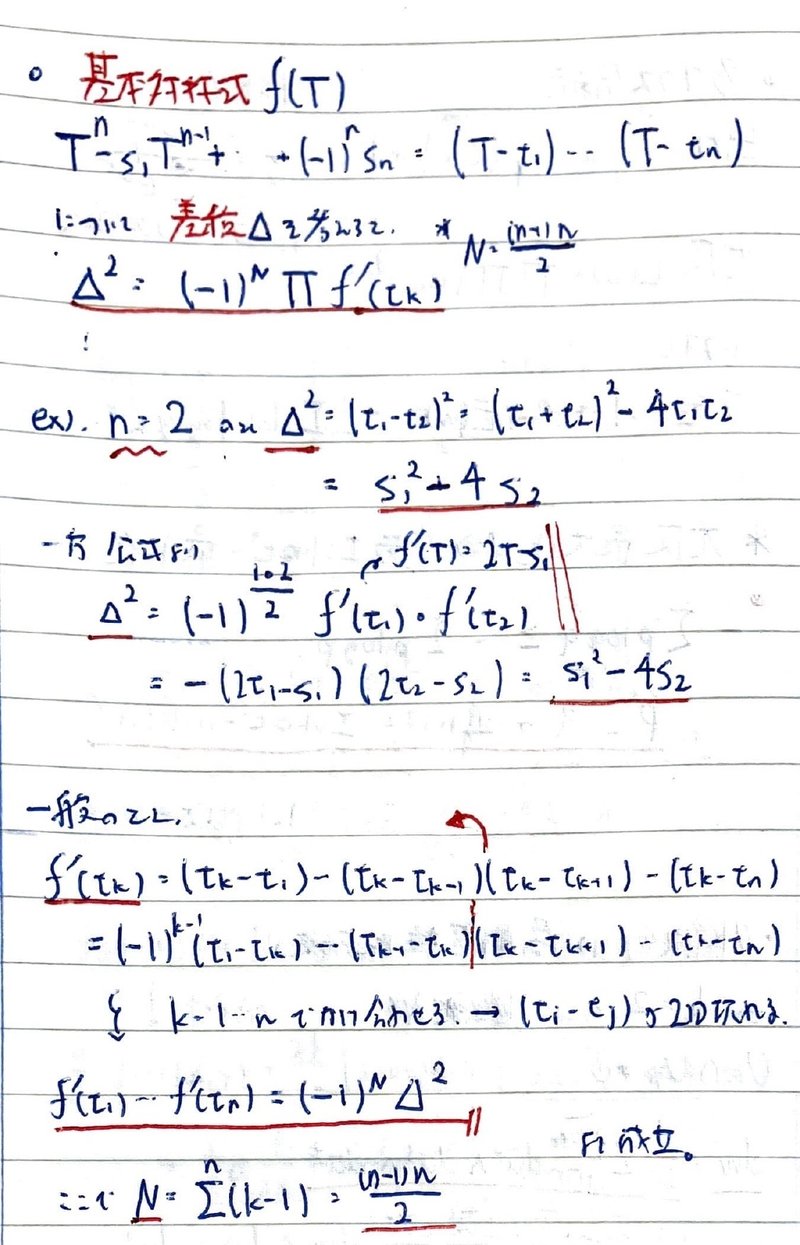 ○ 基本対称式 f(T)
Tⁿ - s₁Tⁿ⁻¹ + ‥ + (-1)ⁿ sₙ = (T - t₁) ‥ (T - tₙ)
について 差積 Δ を考える. * N = (n-1)n/2
Δ² = (-1)^N Π f'(t_k)
ex). n = 2 のとき Δ² = (t₁ - t₂)² = (t₁ + t₂)² - 4t₁t₂
= s₁² - 4s₂
一方 公式より f'(T) = 2T - s₁
Δ² = (-1)^(1・2/2) f'(t₁)・f'(t₂)
= -(2t₁ - s₁)(2t₂ - s₂) = s₁² - 4s₂
一般のとき.
f'(t_k) = (t_k - t₁) ‥ (t_k - t_{k-1})(t_k - t_{k+1}) ‥ (t_k - tₙ)
= (-1)^{k-1}(t₁ - t_k) ‥ (t_{k-1} - t_k)(t_k - t_{k+1}) ‥ (t_k - tₙ)
k = 1 ‥ n でかけ合わせる. → (t_i - t_j) が2回現れる.
f'(t₁) ‥ f'(tₙ) = (-1)^N Δ²
成立。
ここで N = Σⁿ(k-1) = (n-1)n/2